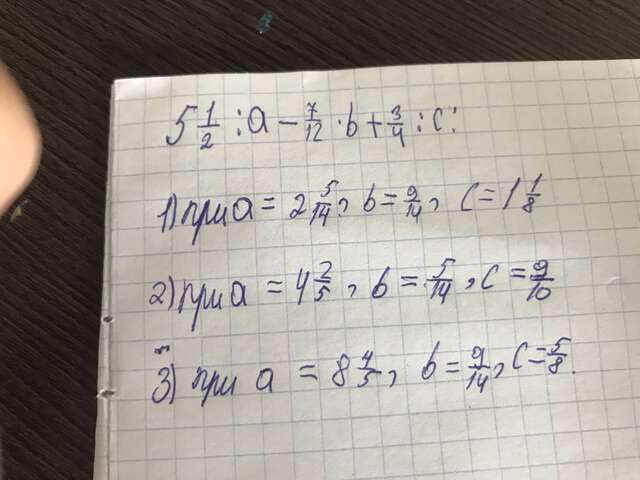 5 1/2 : a - 7/12 · b + 3/4 : c.
1) при a = 2 5/14, b = 9/14, c = 1 1/8
2) при a = 4 2/5, b = 5/14, c = 9/10
3) при a = 8 4/5, b = 9/14, c = 5/8.